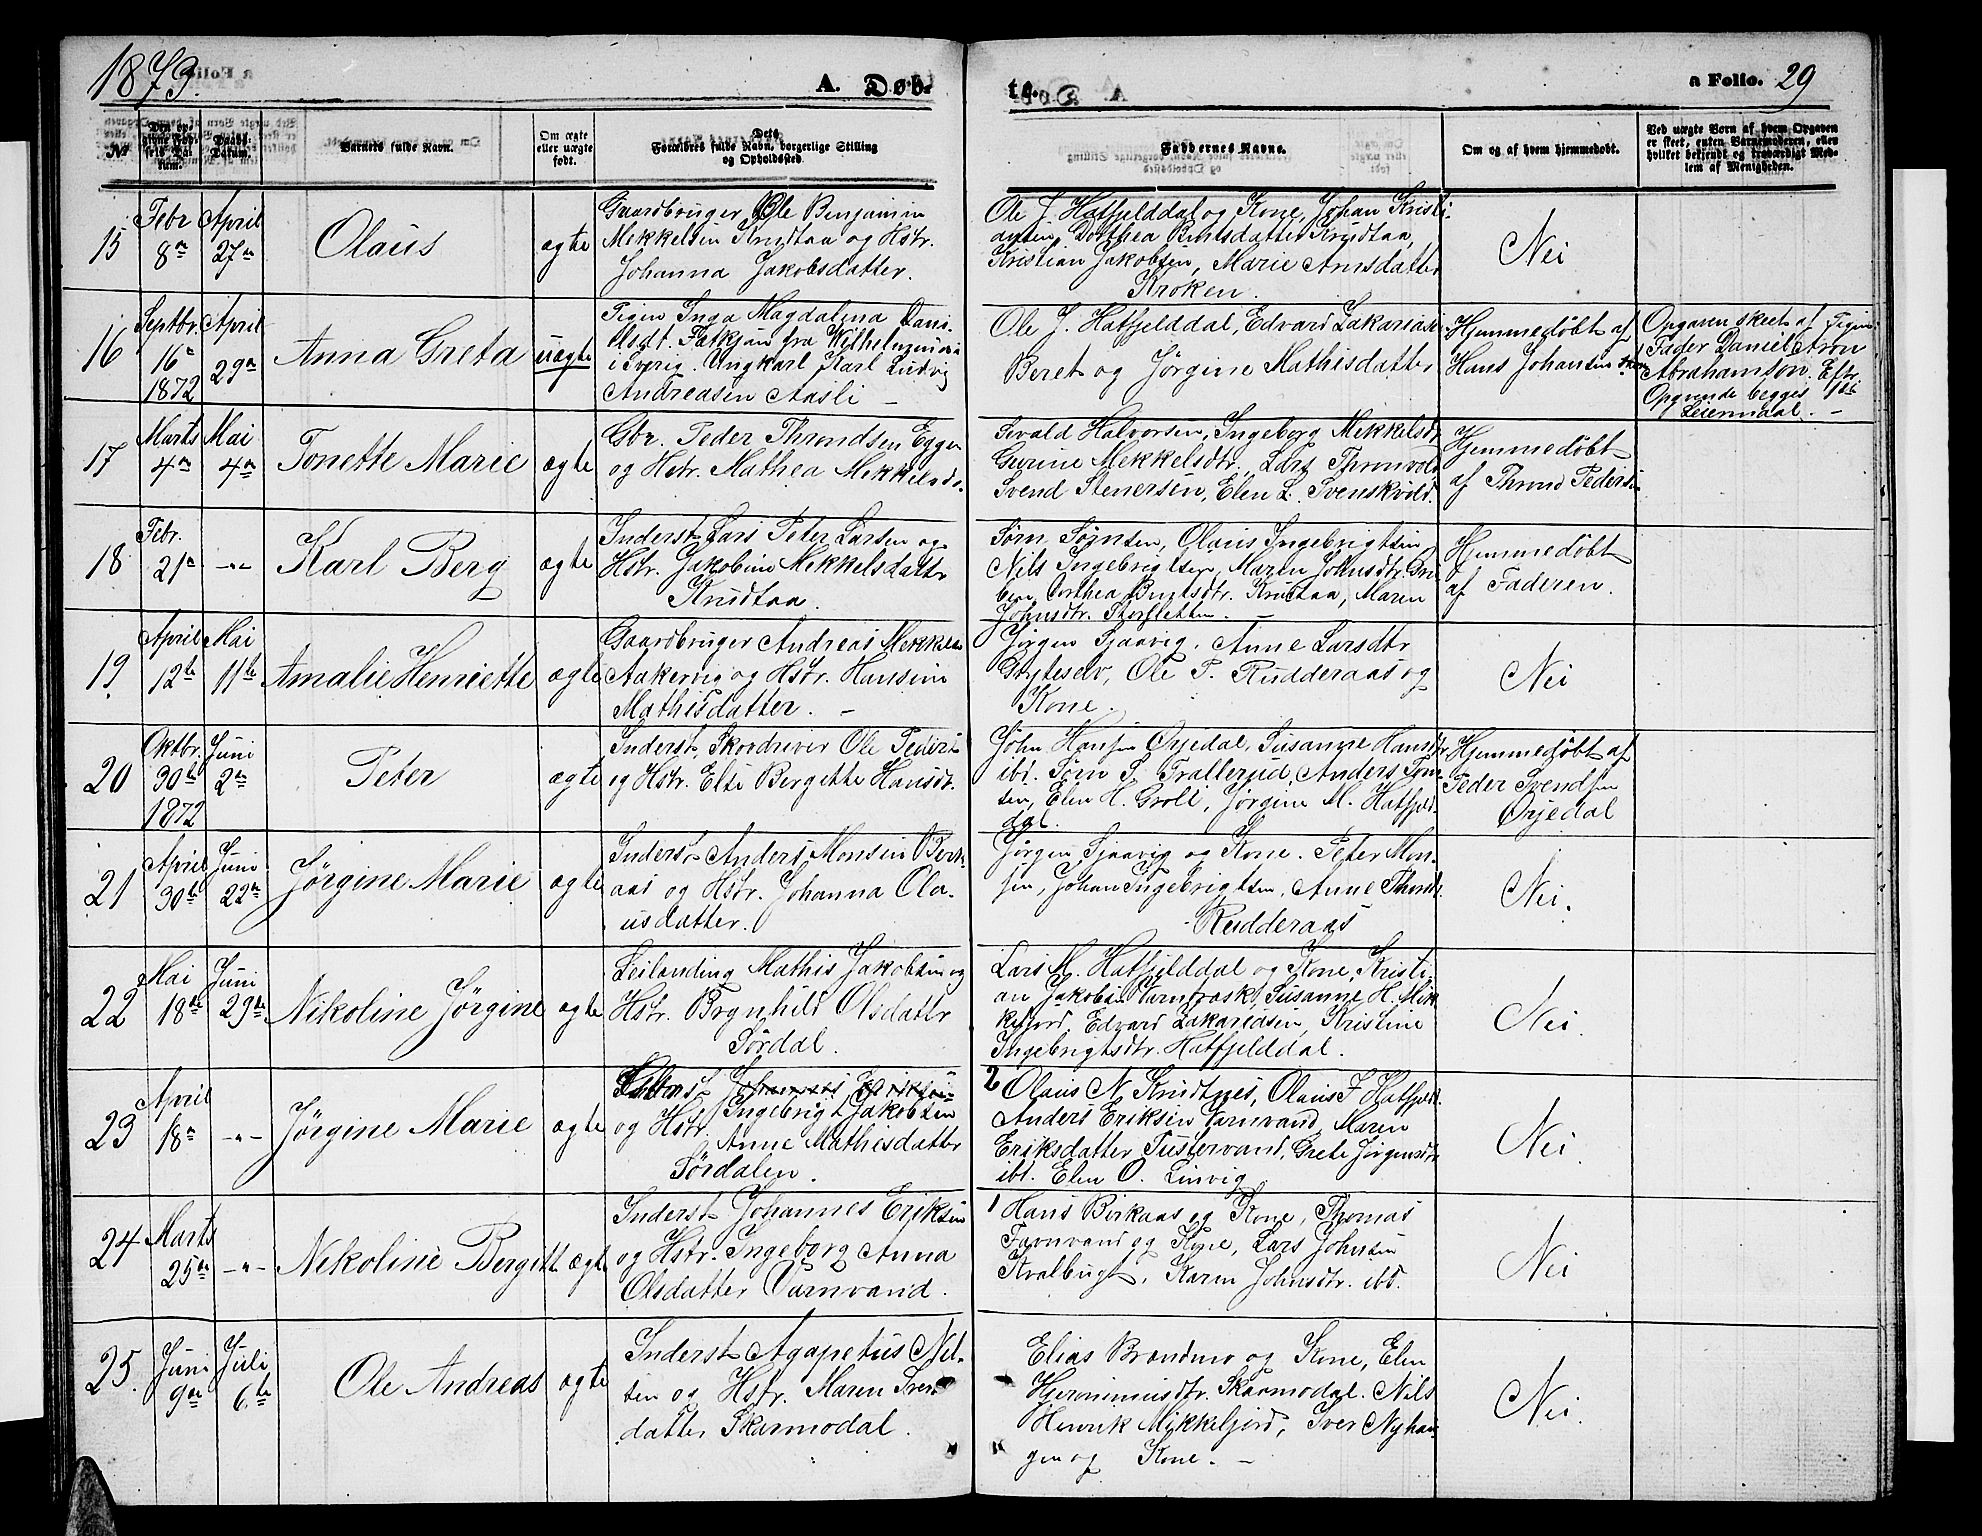 1873.
A. Døbte.
a Folio. 29
No.
Barnets fulde Navn.
Om ægte eller uægte født.
Dets Forældres fulde Navn, borgerlige Stilling og Opholdssted.
Faddernes Navne.
Om og af hvem hjemmedøbt.
Ved uægte Børn af hvem Opgaven er skeet, enten Barnemoderen, eller hvilket bekjendt og troværdigt Medlem af Menigheden.
15
Febr 8de
April 27de
Olaus
ægte
Gaardbruger Ole Benjamin
Mikkelsen Krudtaa og Hstr.
Johanna Jakobsdatter.
Ole J. Hatfjelddal og Kone, Johan Kristi-
ansen, Dorthea Bentsdatter Krudtaa,
Kristian Jakobsen, Marie Arnsdatter
Kroken.
Nei
16
Septbr. 16de 1872
April 29de
Anna Greta
uægte
Pigen Inga Magdalena Dani-
elsdt. fra Wilhelmina
i Sverig. Ungkarl Karl Ludvig
Andreasen Aasli –
Ole J. Hatfjelddal, Edvard Zakarias.
Beret og Jørgine Mathisdatter
Hjemmedøbt af
Hans Johansen
Opgaven skeet af Pigens
Fader Daniel Aron
Abrahamson. Eftr.
Opgivende begges 1ste
Leiermaal. –
17
Marts 4de
Mai 4de
Tonette Marie
ægte
Gbr. Peder Throndsen Eggen
og Hstr. Mathea Mikkelsd.
Sivald Halvorsen, Ingeborg Mikkelsdr
Gurine Mekkelsdtr., Lars Thronvold
Svend Stenersen, Elen L. Svenskvold.
Hjemmedøbt
af Thrond Peders.
18
Febr. 21de
-"-
Karl Berg
ægte
Inderst Lars Peter Larsen og
Hstr. Jakobine Mikkelsdattr
Krudtaa.
Sørn Sørnsen, Olaus Ingebrigtsen
Nils Ingebrigtsen, Maren Johnsdtr. Gru-
ben, Dorthea Bentsdtr. Krutaa, Maren
Johnsdtr. Storsletten –
Hjemmedøbt
af Faderen.
19
April 12te
Mai 11te
Amalie Henriette
ægte
Gaardbruger Andreas Mikkels.
Aakervig og Hstr. Hansine
Mathisdatter. –
Jørgen Sjaavig. Anne Larsdtr
Gryteselv, Ole P. Rudderaas og
Kone.
Nei
20
Oktbr. 30te 1872
Juni 2den
Peter
ægte
Inderst, Skovdriver Ole Peders.
og Hstr. Else Bergitte Hansdr.
John Hansen Ørjedal, Susanne Hansdtr
ibd. Sørn S. Trallerud, Anders Tom-
sen, Elen H. Groli, Jørgine M. Hatfjeld-
dal.
Hjemmedøbt af
Peder Svendsen
Ørjedal
21
April 30te
Juni 22de
Jørgine Marie
ægte
Inderst Anders Monsen Berk-
aas og Hstr. Johanna Ola-
usdatter.
Jørgen Sjaavig og Kone. Peter Mon-
sen, Johan Ingebrigtsen, Anne Thoms.
Rudderaas
Nei.
22
Mai 18de
Juni 29de
Nikoline Jørgine
ægte
Leilending Mathis Jakobsen og
Hstr. Brynhild Olsdattr
Sørdal.
Lars M. Hatfjelddal og Kone, Kristi-
an Jakobsen Varntræsk, Susanne H. Mik-
kefjord, Edvard Zakariasen, Kristine
Ingebrigtsdtr. Hatfjelddal.
Nei.
23
April 18de
-"-
Jørgine Marie
ægte
Inderst Johannes Eriksen
Ingebrigt Jakobsen
og Hstr. Anne Mathisdatter
Sørdalen.
2 Olaus N. Krudtnes, Olaus J. Hatfjeld.
Anders Eriksen Varnvand, Maren
Eriksdatter Tustervand, Grete Jørgensdtr
ibd. Elen O. Linvig
Nei.
24
Marts 25de
-"-
Nikoline Bergitte
ægte
Inderst Johannes Eriksen
og Hstr. Ingeborg Anna
Olsdatter Varnvand.
1 Hans Birkaas og Kone, Thomas
Favnvand og Kone, Lars Johnsen
Kvalbugt, Karen Johnsdtr. ibd.
Nei
25
Juni 9de
Juli 6te
Ole Andreas
ægte
Inderst Agapetus Nil-
sen og Hstr. Maren Svens-
datter Skarmodal.
Elias Brandmo og Kone, Elen
Hieronimusdtr. Skarmodal. Nils
Henrik Mikkeljord, Iver Nyhau-
gen og Kone. –
Nei.